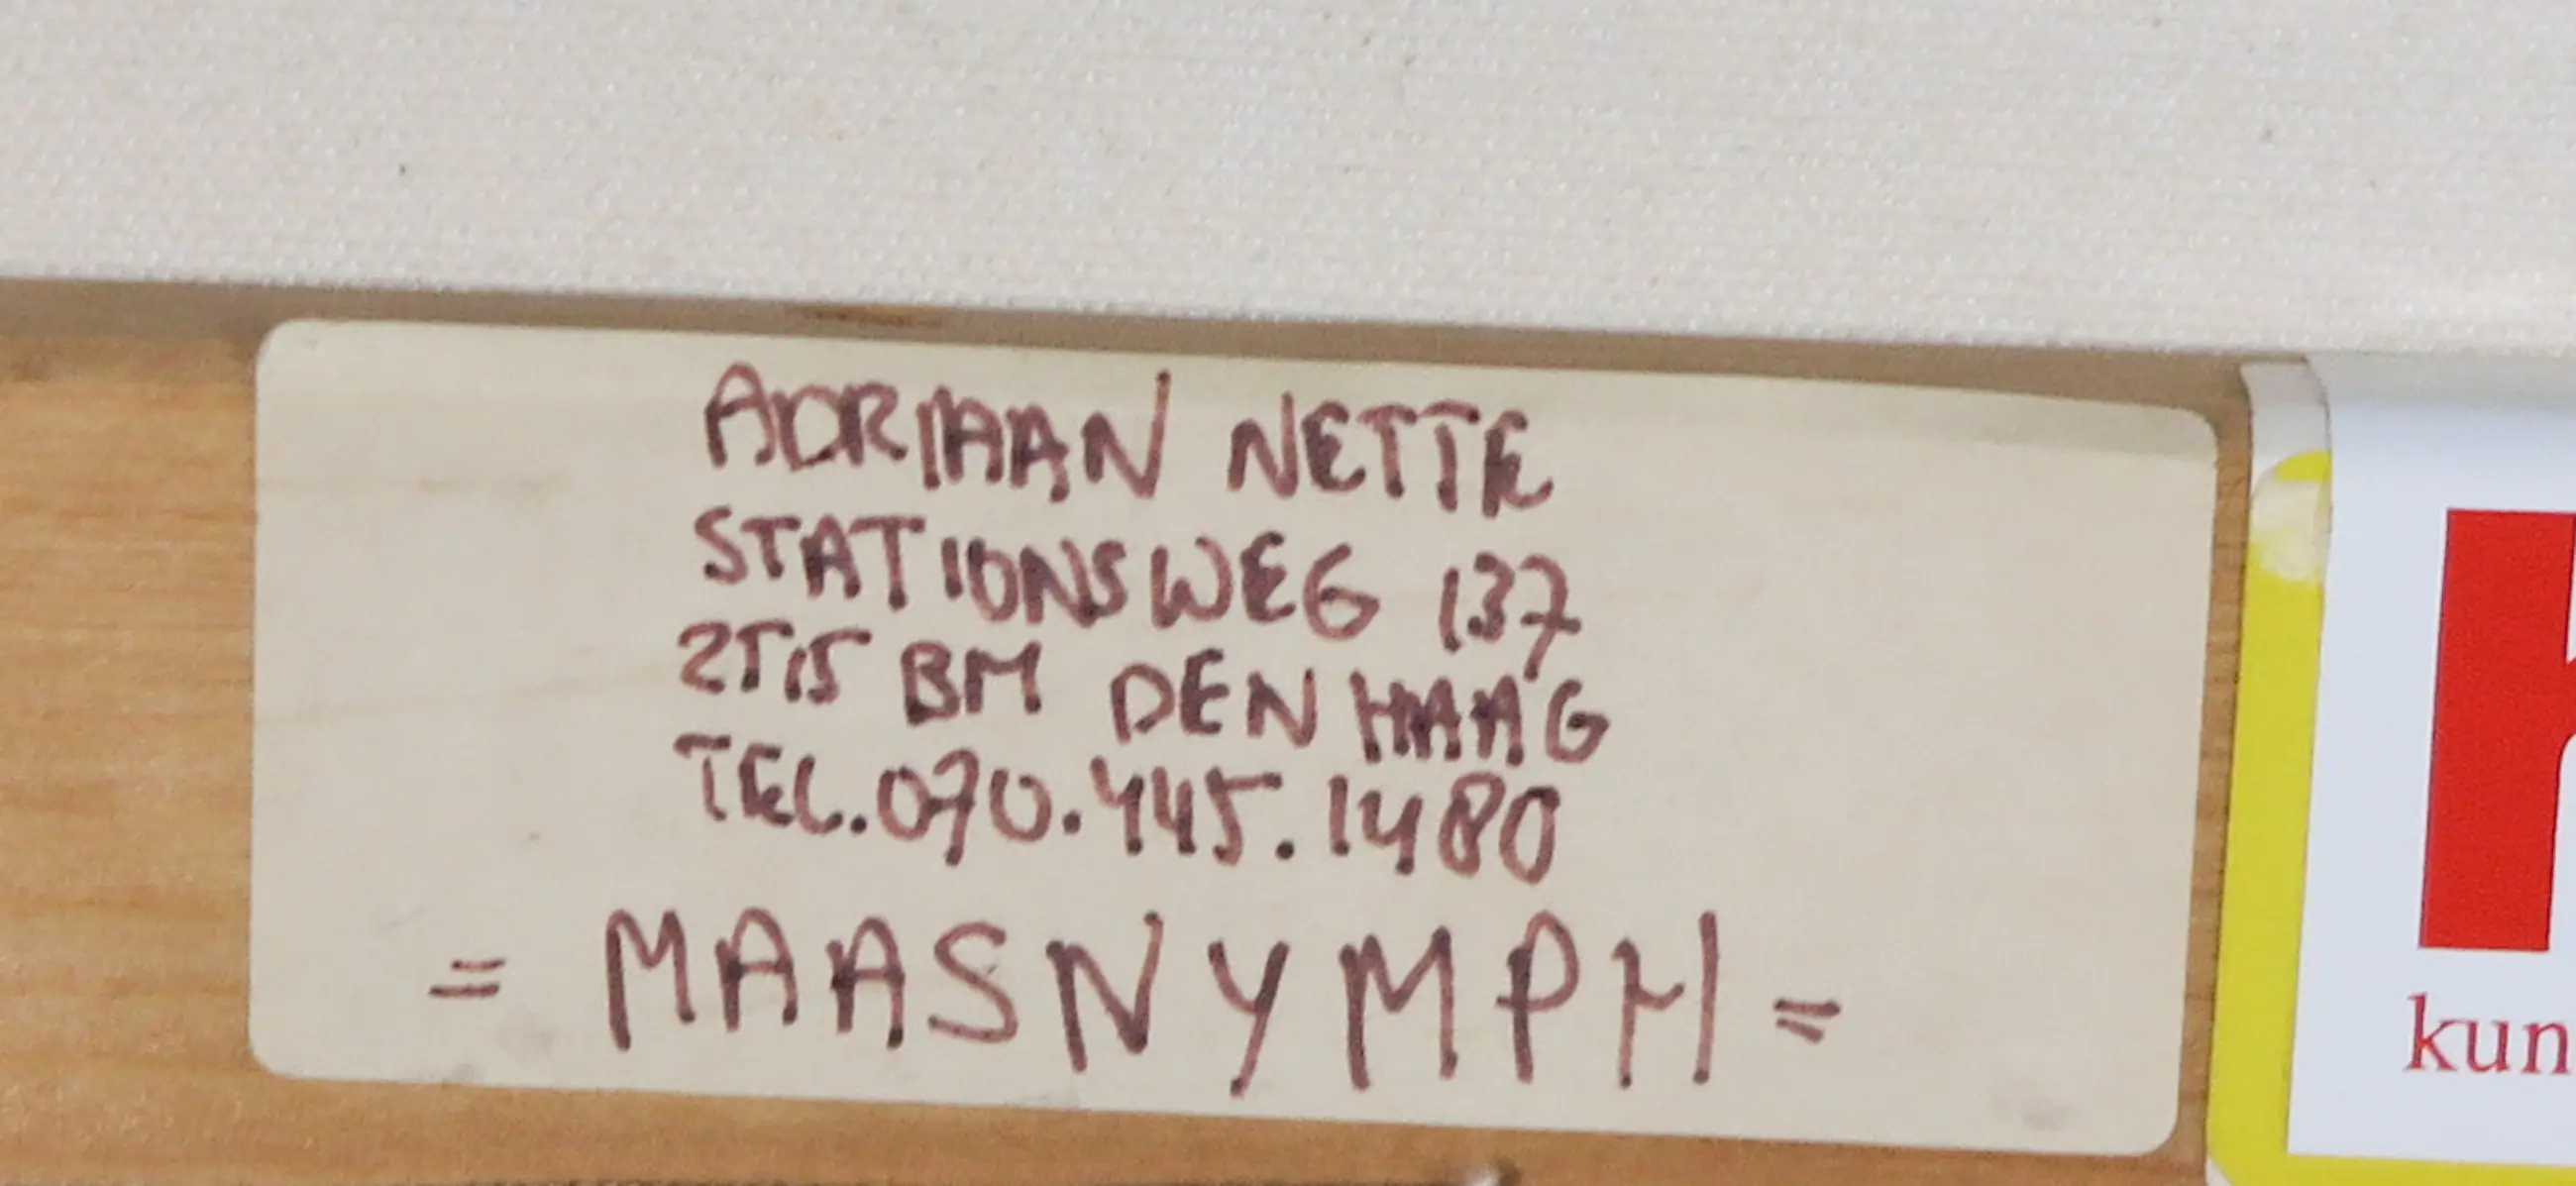 ADRIAAN NETTE
STATIONSWEG 137
2515 BM DEN HAAG
TEL.070.445.1480
= MAASNYMPH =
kun